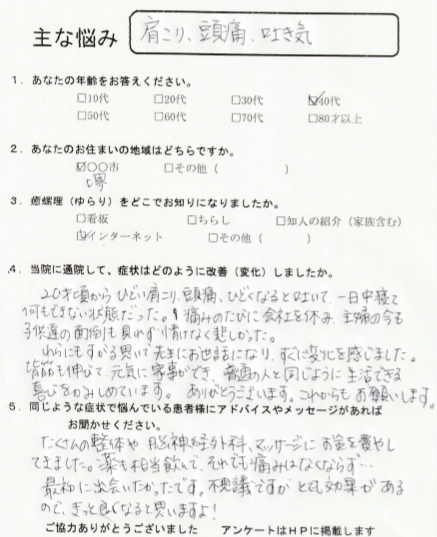 主な悩み 肩こり、頭痛、吐き気
1．あなたの年齢をお答えください。
□10代 □20代 □30代 ☑40代
□50代 □60代 □70代 □80才以上
2．あなたのお住まいの地域はどちらですか。
☑○○市 □その他（ ）
堺
3．癒螺理（ゆらり）をどこでお知りになりましたか。
□看板 □ちらし □知人の紹介（家族含む）
☑インターネット □その他（ ）
4．当院に通院して、症状はどのように改善（変化）しましたか。
20才頃からひどい肩こり、頭痛、ひどくなると吐いて、一日中寝て
何もできない状態だった。痛みのたびに会社を休み、主婦の今も
子供達の面倒も見れず情けなく悲しかった。
わらにもすがる思いで先生にお世話になり、すぐに変化を感じました。
背筋も伸びて、元気に家事ができ、普通の人と同じように生活できる
喜びをかみしめています。ありがとうございます。これからもお願いします。
5．同じような症状で悩んでいる患者様にアドバイスやメッセージがあれば
お聞かせください。
たくさんの整体や脳神経外科、マッサージにお金を費やし
てきました。薬も相当飲んで、それでも痛みはなくならず…
最初に出会いたかったです。不思議ですがとても効果がある
ので、きっと良くなると思いますよ！
ご協力ありがとうございました アンケートはHPに掲載します